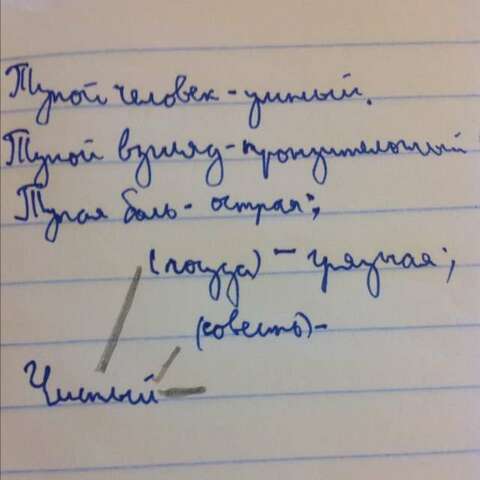 Тупой человек - умный.
Тупой взгляд - пронзительный
Тупая боль - острая;
(посуда) - грязная;
(совесть) -
Чистый -